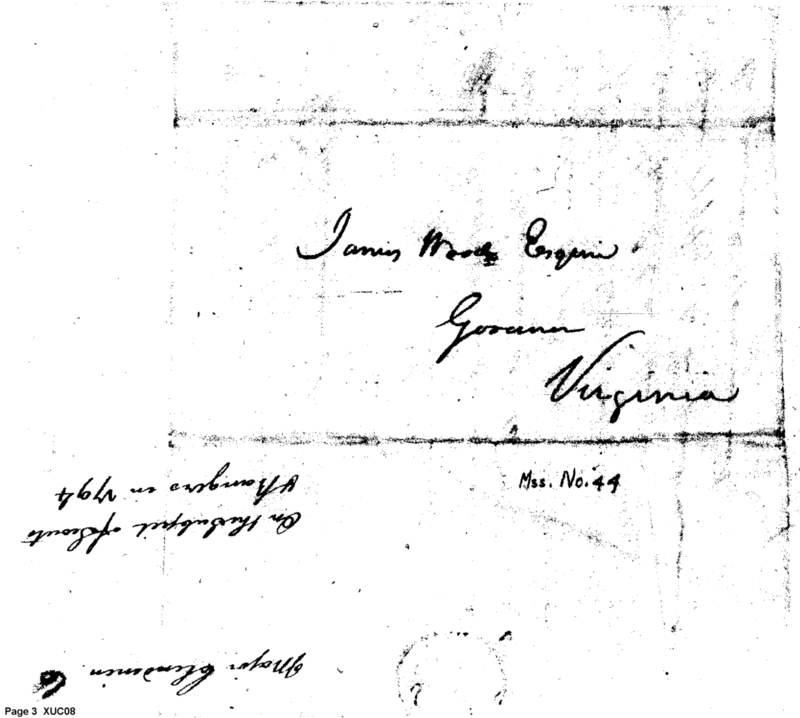 James Wood Esquire
Governor
Virginia
Mss. No. 44
Major Clendenin
On the Subject of Scouts
& Rangers in 1794
Page 3 XUC08